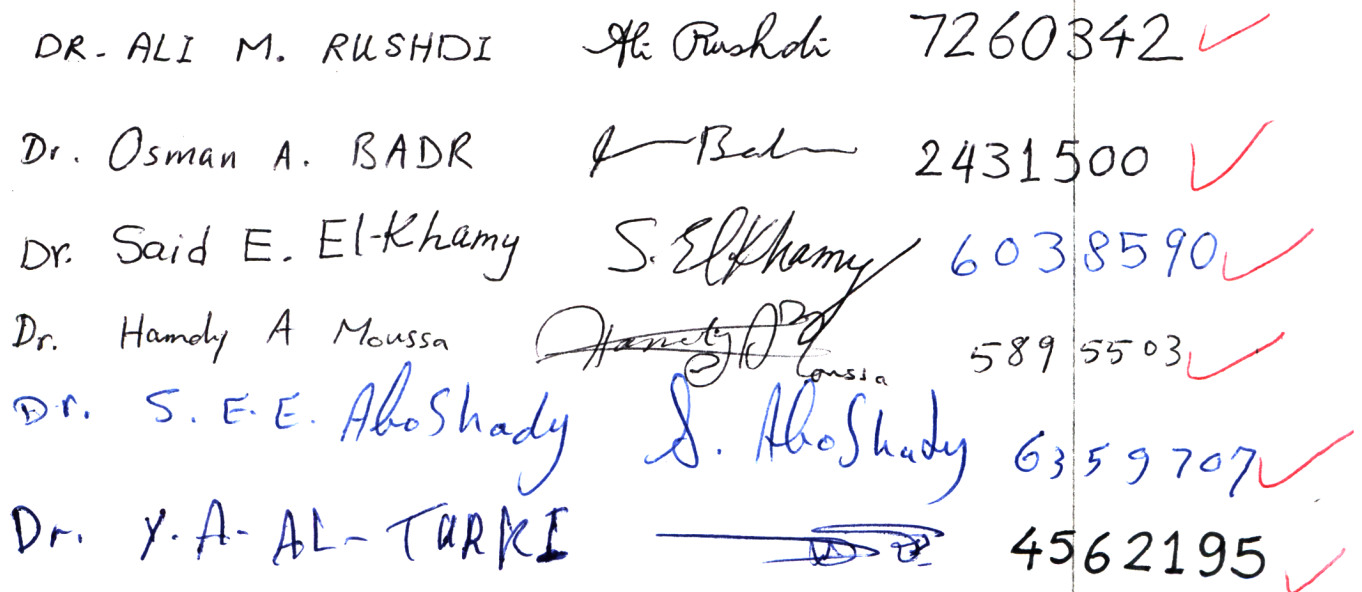 DR. ALI M. RUSHDI Ali Rushdi 7260342
Dr. Osman A. BADR Badr 2431500
Dr. Said E. El-Khamy S. ElKhamy 6038590
Dr. Hamdy A Moussa Hamdy Moussa 5895503
Dr. S. E. E. AboShady S. AboShady 6359707
Dr. Y. A- AL-TURKI 4562195